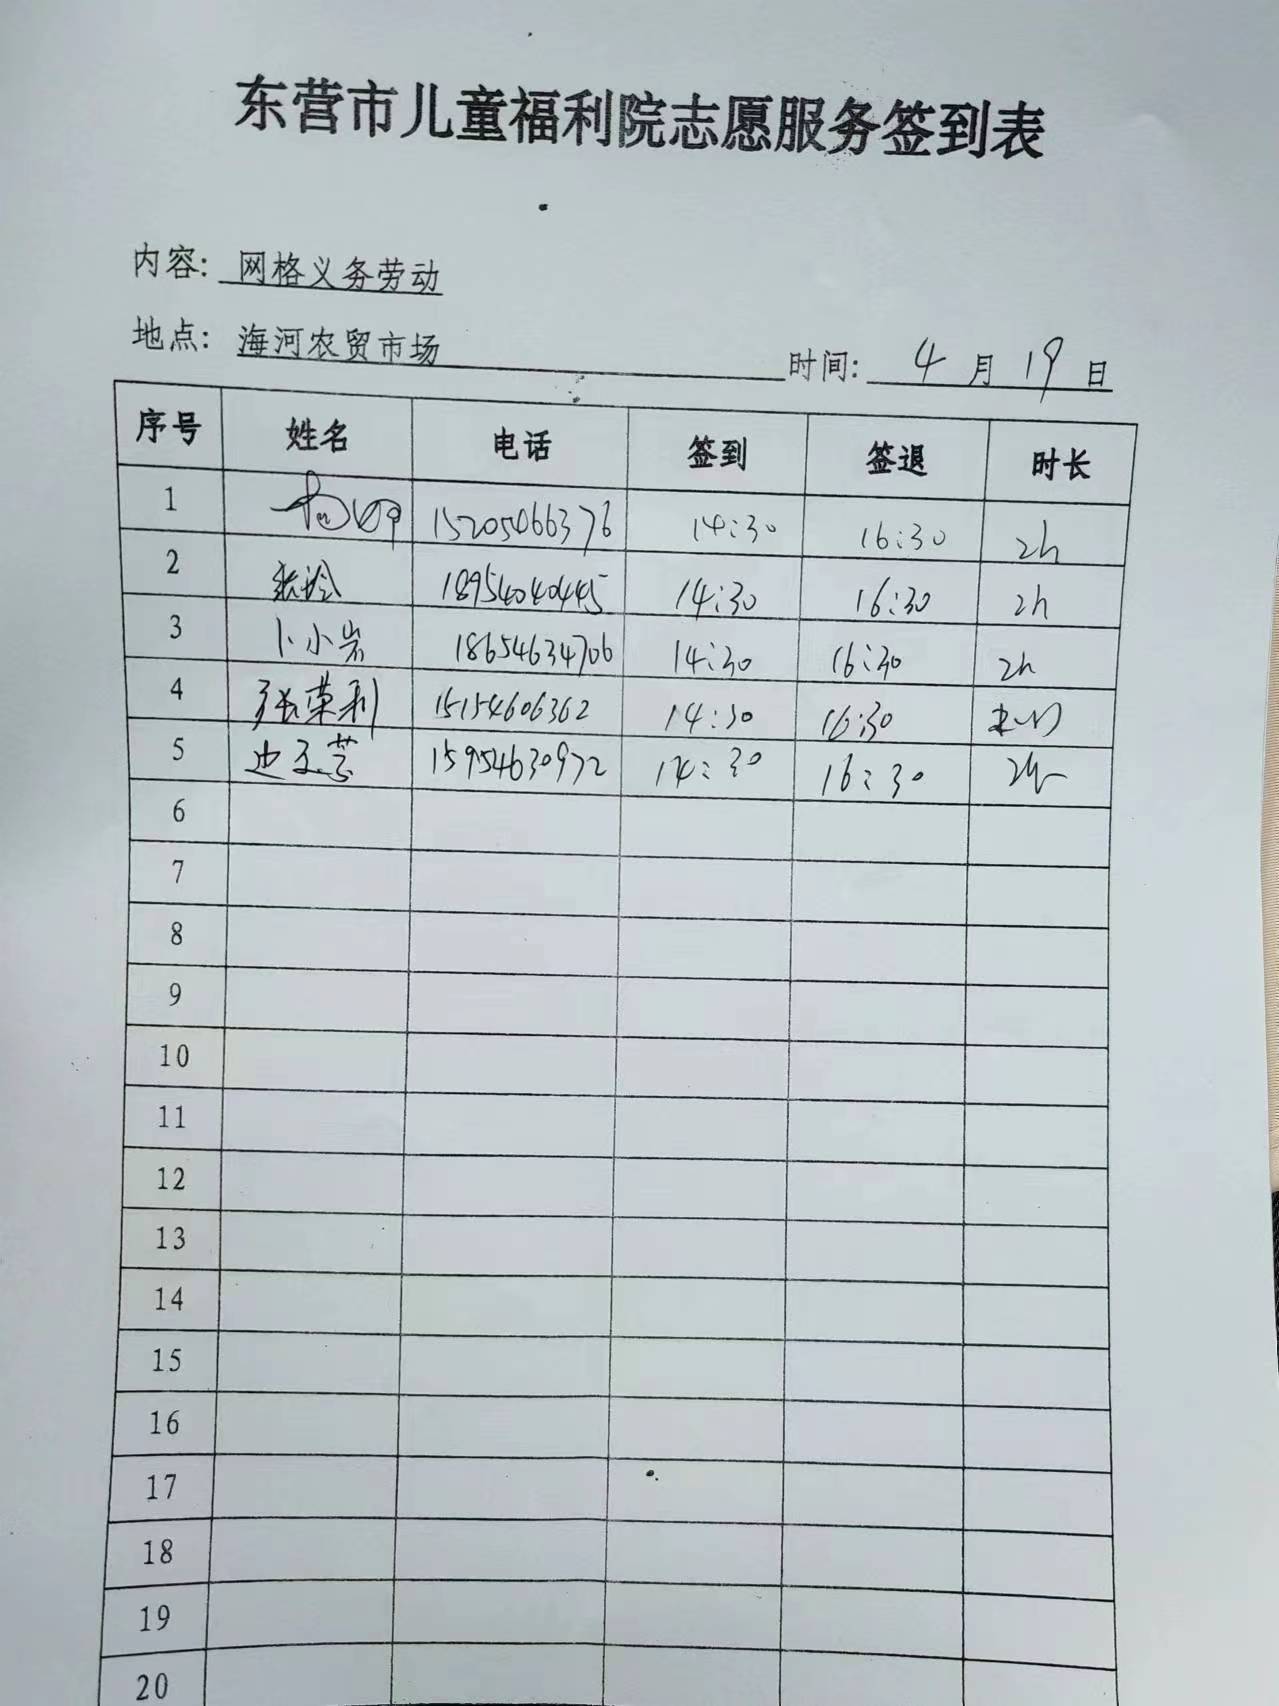 东营市儿童福利院志愿服务签到表
内容: 网格义务劳动
地点: 海河农贸市场 时间: 4 月 19 日
序号 姓名 电话 签到 签退 时长
1 15205466376 14:30 16:30 2h
2 张玲 18954040445 14:30 16:30 2h
3 卜小岩 18654634706 14:30 16:30 2h
4 张荣利 15154606362 14:30 16:30
5 15954630972 14:30 16:30 2h
6
7
8
9
10
11
12
13
14
15
16
17
18
19
20